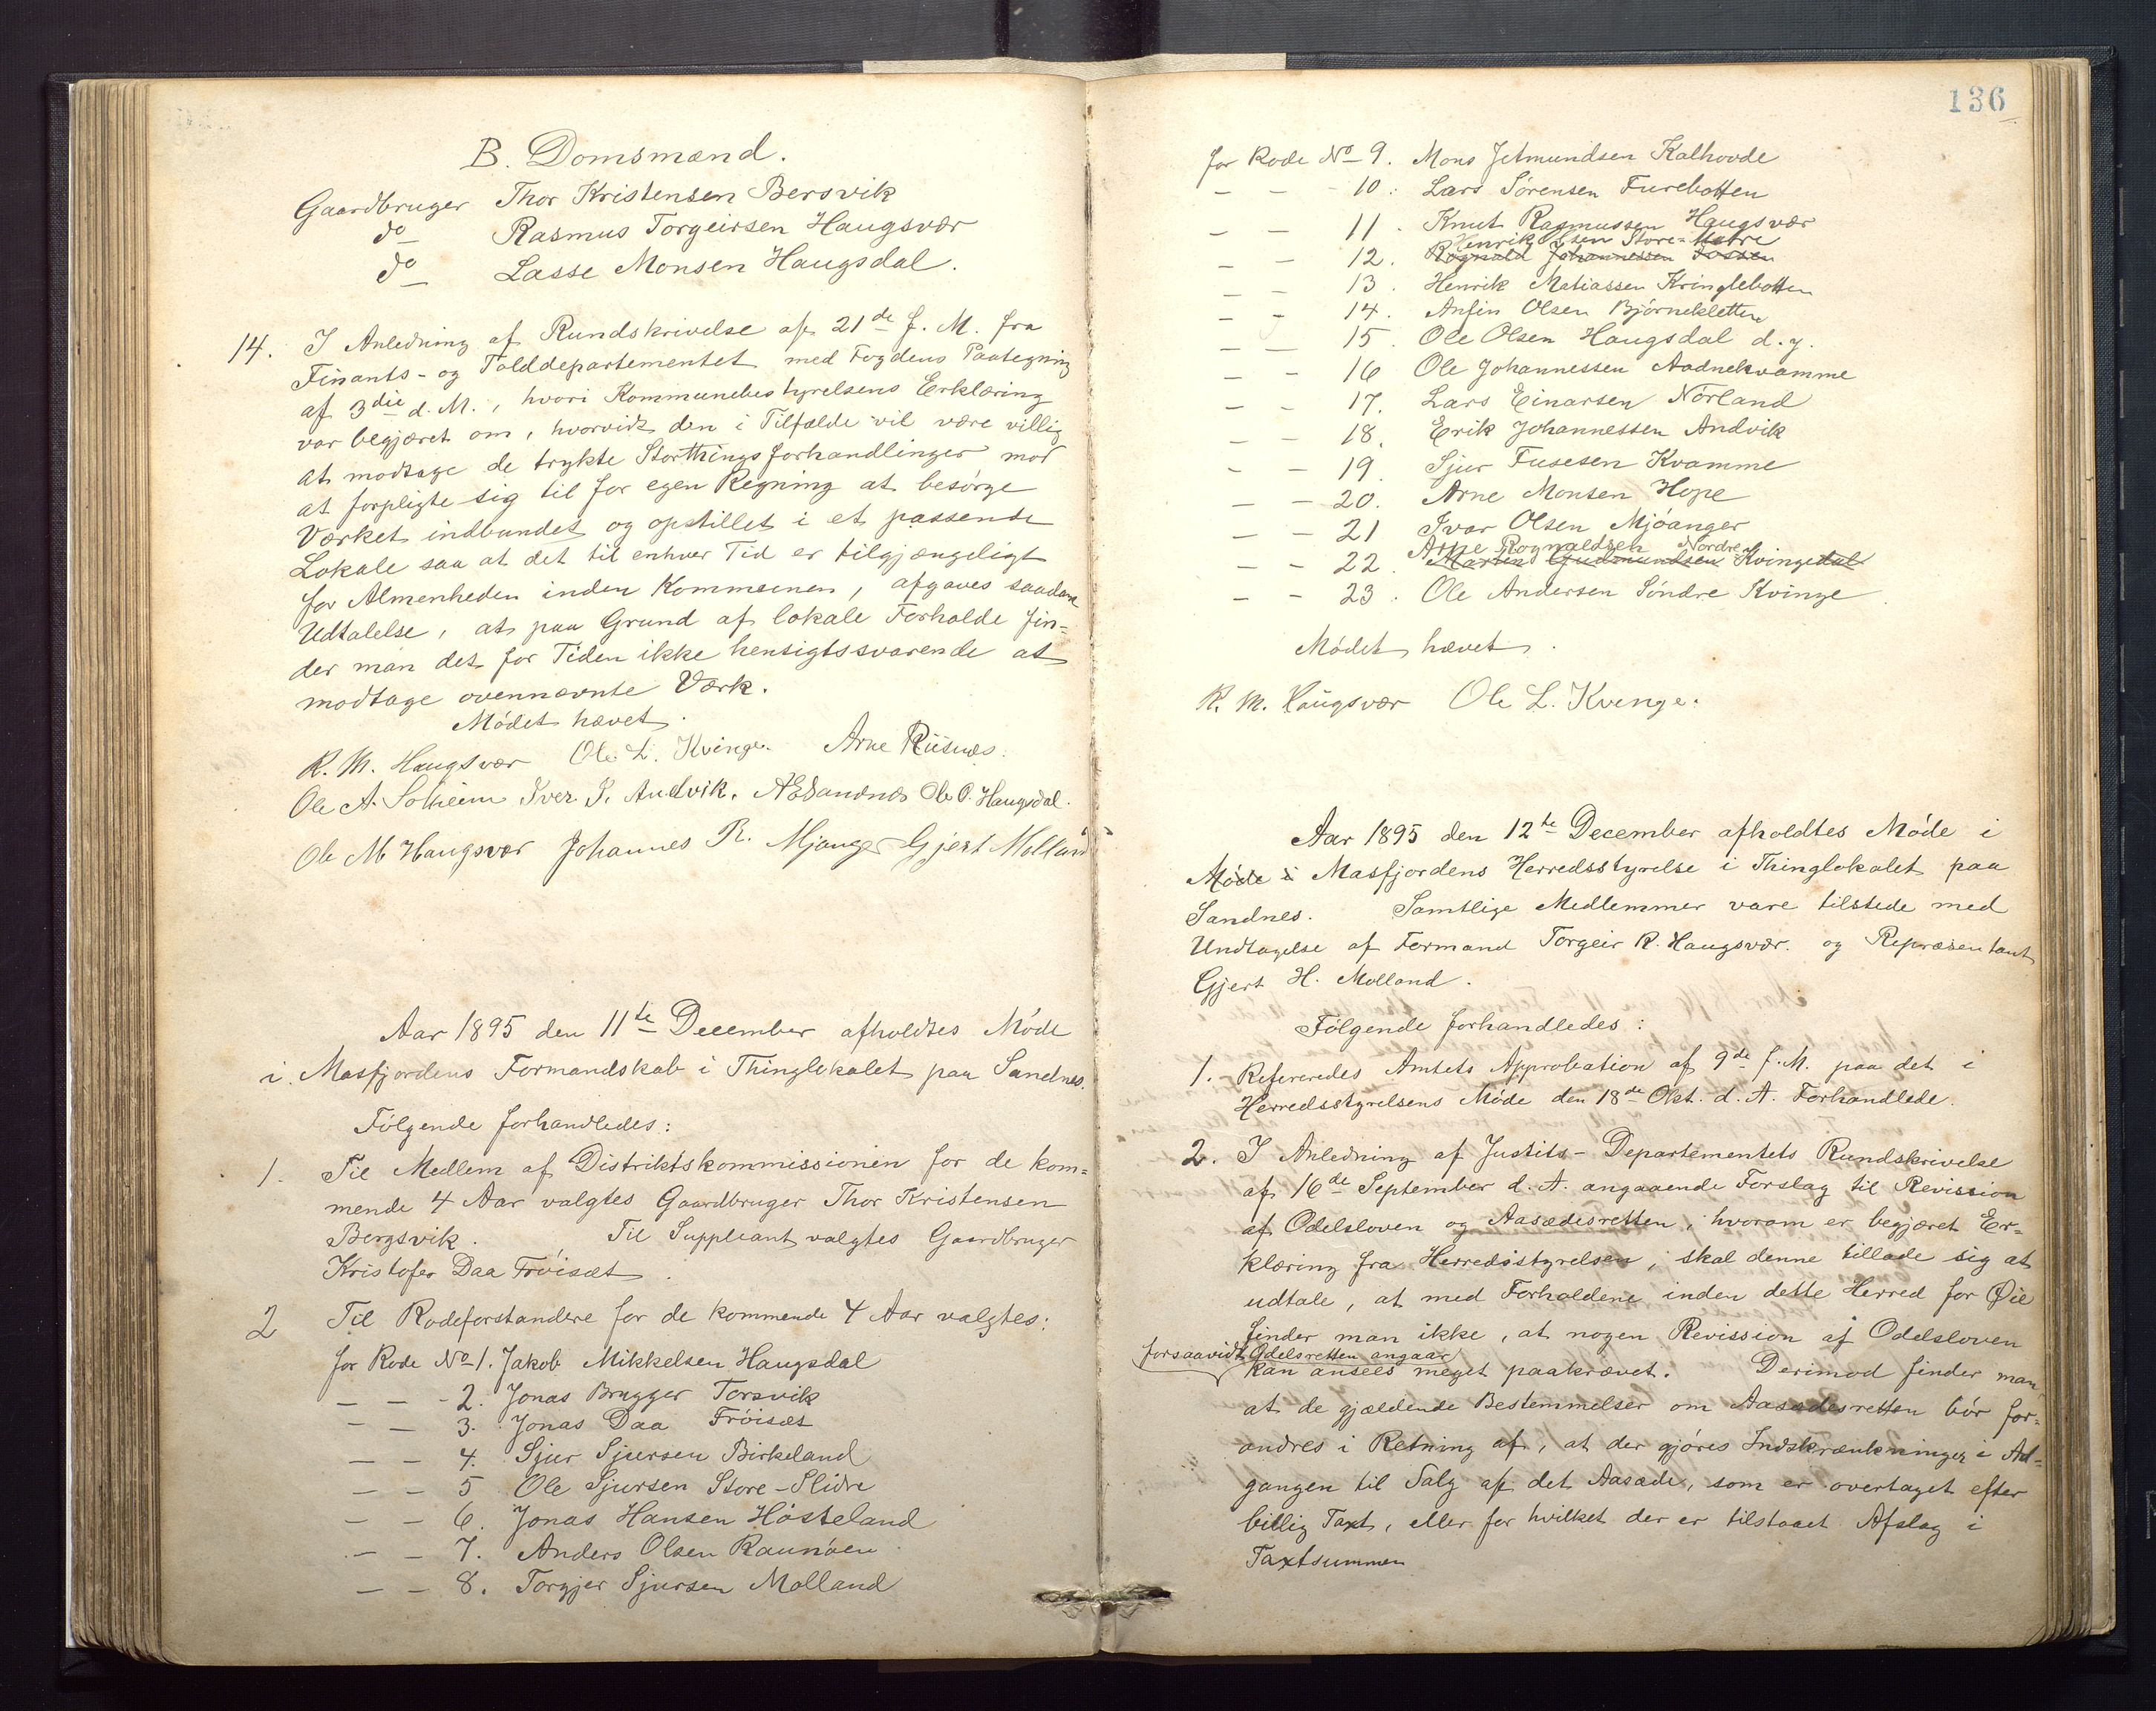 B. Domsmænd.
Gaardbruger Thor Kristensen Bersvik
do Rasmus Torgeirsen Haugsvær
do Lasse Monsen Haugsdal.
14. I Anledning af Rundskrivelse af 21de f. M. fra
Finants- og Tolddepartementet med Fogdens Paategning
af 3die d. M., hvori Kommunebestyrelsens Erklæring
var begjæret om, hvorvidt den i Tilfælde vil være villig
at modtage de trykte Storthingsforhandlinger mod
at forpligte sig til for egen Regning at besørge
Værket indbundet og opstillet i et passende
Lokale saa at det til enhver Tid er tilgjængeligt
for Almenheden inden Kommunen, afgaves saadan
Udtalelse, at paa Grund af lokale Forholde fin=
der man det for Tiden ikke hensigtssvarende at
modtage ovennævnte Værk.
Mødet hævet.
R. M. Haugsvær Ole L. Kvinge. Arne Riisnes.
Ole A. Solheim Iver I. Andvik. AESandnes Ole O. Haugsdal.
Ole M Haugsvær Johannes R. Mjanger Gjert Molland
Aar 1895 den 11te December afholdtes Møde
i Masfjordens Formandskab i Thinglokalet paa Sandnes.
Følgende forhandledes:
1. Til Medlem af Distriktskommissionen for de kom=
mende 4 Aar valgtes Gaardbruger Thor Kristensen
Bergsvik. Til Suppleant valgtes Gaardbruger
Kristofer Daa Frøiset.
2 Til Rodeforstandere for de kommende 4 Aar valgtes:
for Rode No 1. Jakob Mikkelsen Haugsdal
— — - 2. Jonas Brugger Torsvik
— — 3. Jonas Daa Frøiset
— — 4. Sjur Sjursen Birkeland
— — 5 Ole Sjursen Store-Slidre
— — 6. Jonas Hansen Høsteland
— — 7. Anders Olsen Raunøen
— — 8. Torgjer Sjursen Molland
136
for Rode No 9. Mons Jetmundsen Kalhovde
— — - 10. Lars Sørensen Furebotten
— — 11. Knut Rasmussen Haugsvær
Henrik Olsen Store-Matre
— — 12. Rognald Johannessen Fossen
— — 13. Henrik Matiassen Kringlebotten
— — 14. Anfin Olsen Bjørnekletten
— — 15. Ole Olsen Haugsdal d.y.
— — 16 Ole Johannessen Aadnekvamme
— — 17. Lars Einarsen Nørland
— — 18. Erik Johannessen Andvik
— — 19. Sjur Fusesen Kvamme
— — 20. Arne Monsen Hope
— — 21 Ivar Olsen Mjøanger
Arne Rognaldsen Nordre
— — 22. Martin Gudmundsen Kvingedal
— — 23. Ole Andersen Søndre Kvinge
Mødet hævet.
R. M. Haugsvær Ole L. Kvenge.
Aar 1895 den 12te December afholdtes Møde i
Møde i Masfjordens Herredsstyrelse i Thinglokalet paa
Sandnes. Samtlige Medlemmer vare tilstede med
Undtagelse af Formand Torgeir R. Haugsvær. og Repræsentant
Gjert H. Molland.
Følgende forhandledes:
1. Refereredes Amtets Approbation af 9de f. M. paa det i
Herredsstyrelsens Møde den 18de Okt. d. A. Forhandlede.
2. I Anledning af Justits-Departementets Rundskrivelse
af 16de September d. A. angaaende Forslag til Revission
af Odelsloven og Aasædesretten, hvorom er begjæret Er=
klæring fra Herredsstyrelsen, skal denne tillade sig at
udtale, at med Forholdene inden dette Herred for Øie
finder man ikke, at nogen Revission af Odelsloven
forsaavidt Odelsretten angaar
kan ansees meget paakrævet. Derimod finder man
at de gjældende Bestemmelser om Aasædesretten bør for=
andres i Retning af, at der gjøres Indskrænkninger i Ad=
gangen til Salg af det Aasæde, som er overtaget efter
billig Taxt, eller for hvilket der er tilstaaet Afslag i
Taxtsummen